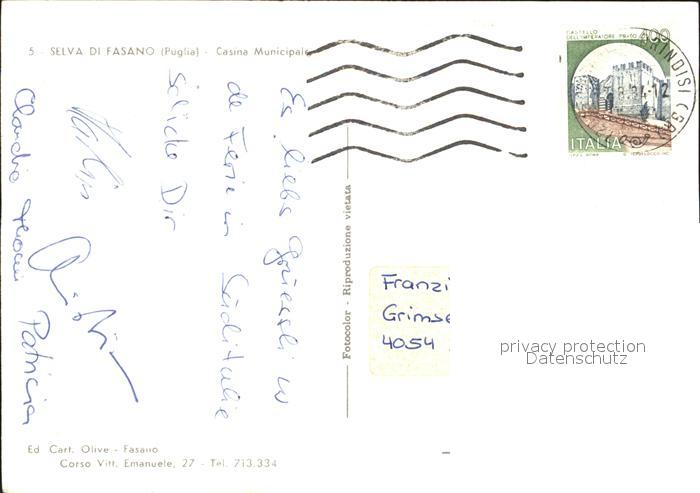 5 - SELVA DI FASANO (Puglia) - Casina Municipale
CASTELLO
DELL'IMPERATORE PRATO
400
ITALIA
BRINDISI
Es liebs Grüessli us
de Ferie in Süditalie
Dir
Claudio
Patricia
Fotocolor - Riproduzione vietata
Franzi
Grimse
4054
privacy protection
Datenschutz
Ed Cart. Olive - Fasano
Corso Vitt. Emanuele, 27 - Tel. 713.334